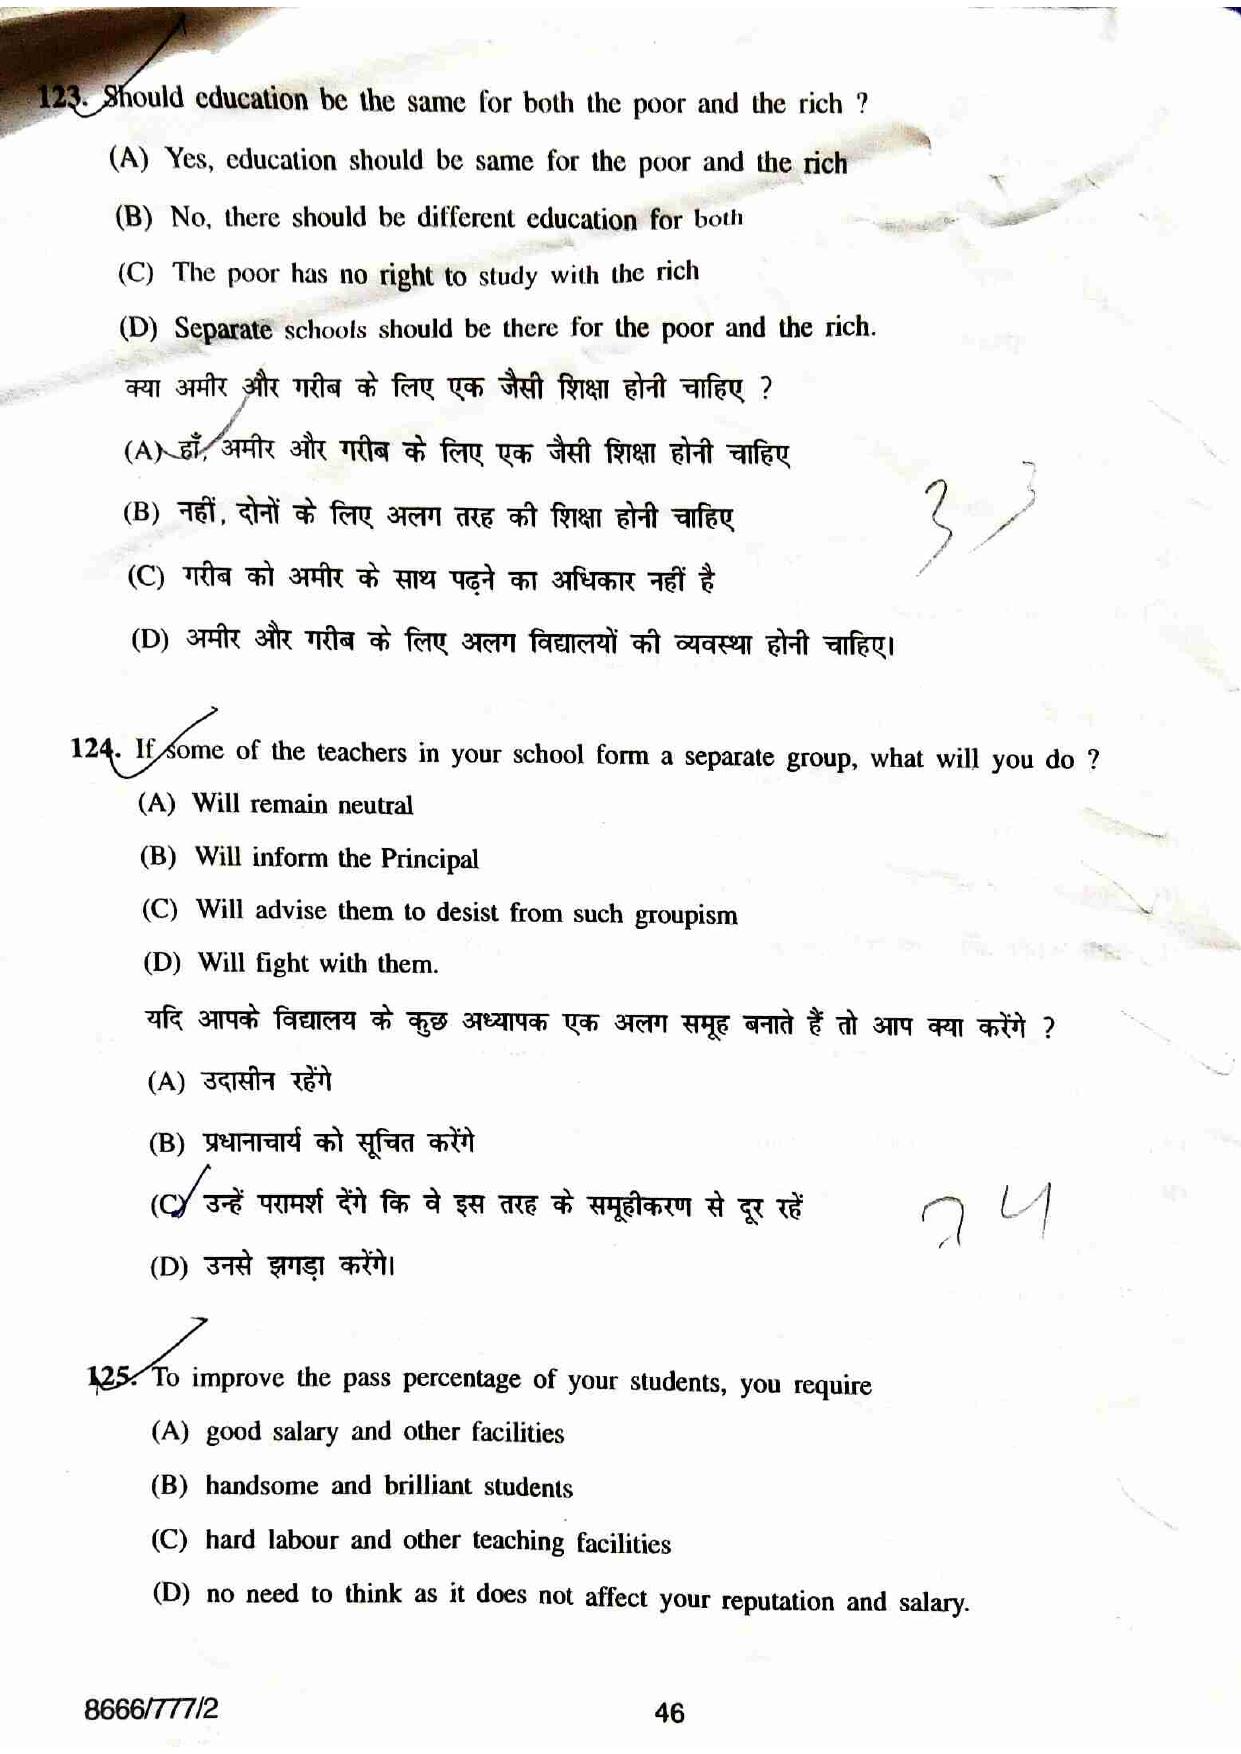 123. Should education be the same for both the poor and the rich ?
(A) Yes, education should be same for the poor and the rich
(B) No, there should be different education for both
(C) The poor has no right to study with the rich
(D) Separate schools should be there for the poor and the rich.
क्या अमीर और गरीब के लिए एक जैसी शिक्षा होनी चाहिए ?
(A) हाँ, अमीर और गरीब के लिए एक जैसी शिक्षा होनी चाहिए
(B) नहीं, दोनों के लिए अलग तरह की शिक्षा होनी चाहिए
(C) गरीब को अमीर के साथ पढ़ने का अधिकार नहीं है
(D) अमीर और गरीब के लिए अलग विद्यालयों की व्यवस्था होनी चाहिए।
124. If some of the teachers in your school form a separate group, what will you do ?
(A) Will remain neutral
(B) Will inform the Principal
(C) Will advise them to desist from such groupism
(D) Will fight with them.
यदि आपके विद्यालय के कुछ अध्यापक एक अलग समूह बनाते हैं तो आप क्या करेंगे ?
(A) उदासीन रहेंगे
(B) प्रधानाचार्य को सूचित करेंगे
(C) उन्हें परामर्श देंगे कि वे इस तरह के समूहीकरण से दूर रहें
(D) उनसे झगड़ा करेंगे।
125. To improve the pass percentage of your students, you require
(A) good salary and other facilities
(B) handsome and brilliant students
(C) hard labour and other teaching facilities
(D) no need to think as it does not affect your reputation and salary.
8666/777/2
46